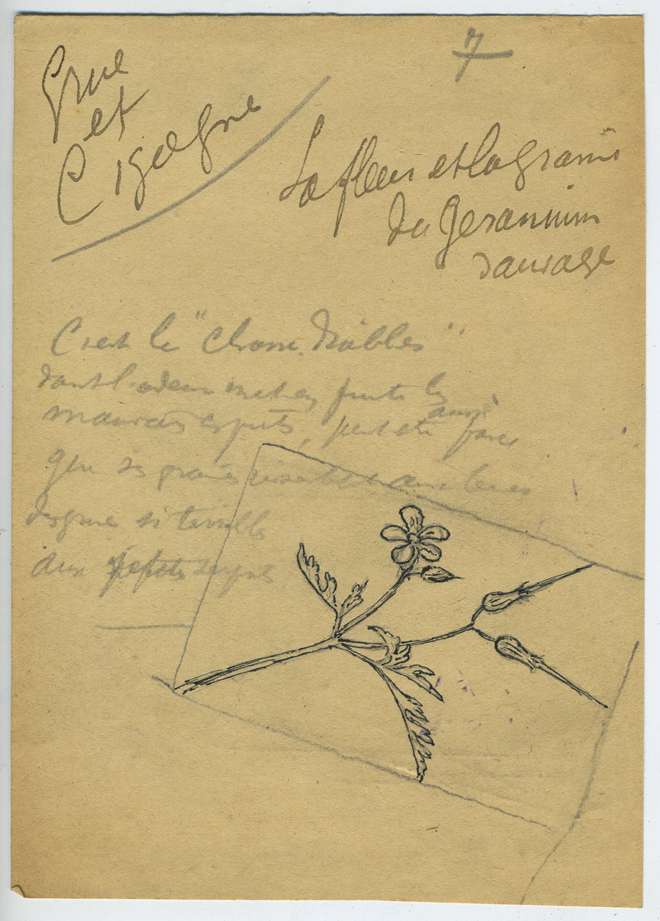 7
Grue
et
Cigogne
La fleur et la graine
du Geranium
sauvage
C'est le "chasse Diables"
dont l'odeur met en fuite les
mauvais esprits, peut etre aussi parce
que ses graines ressemblent aux becs
si terrible
aux petits serpents